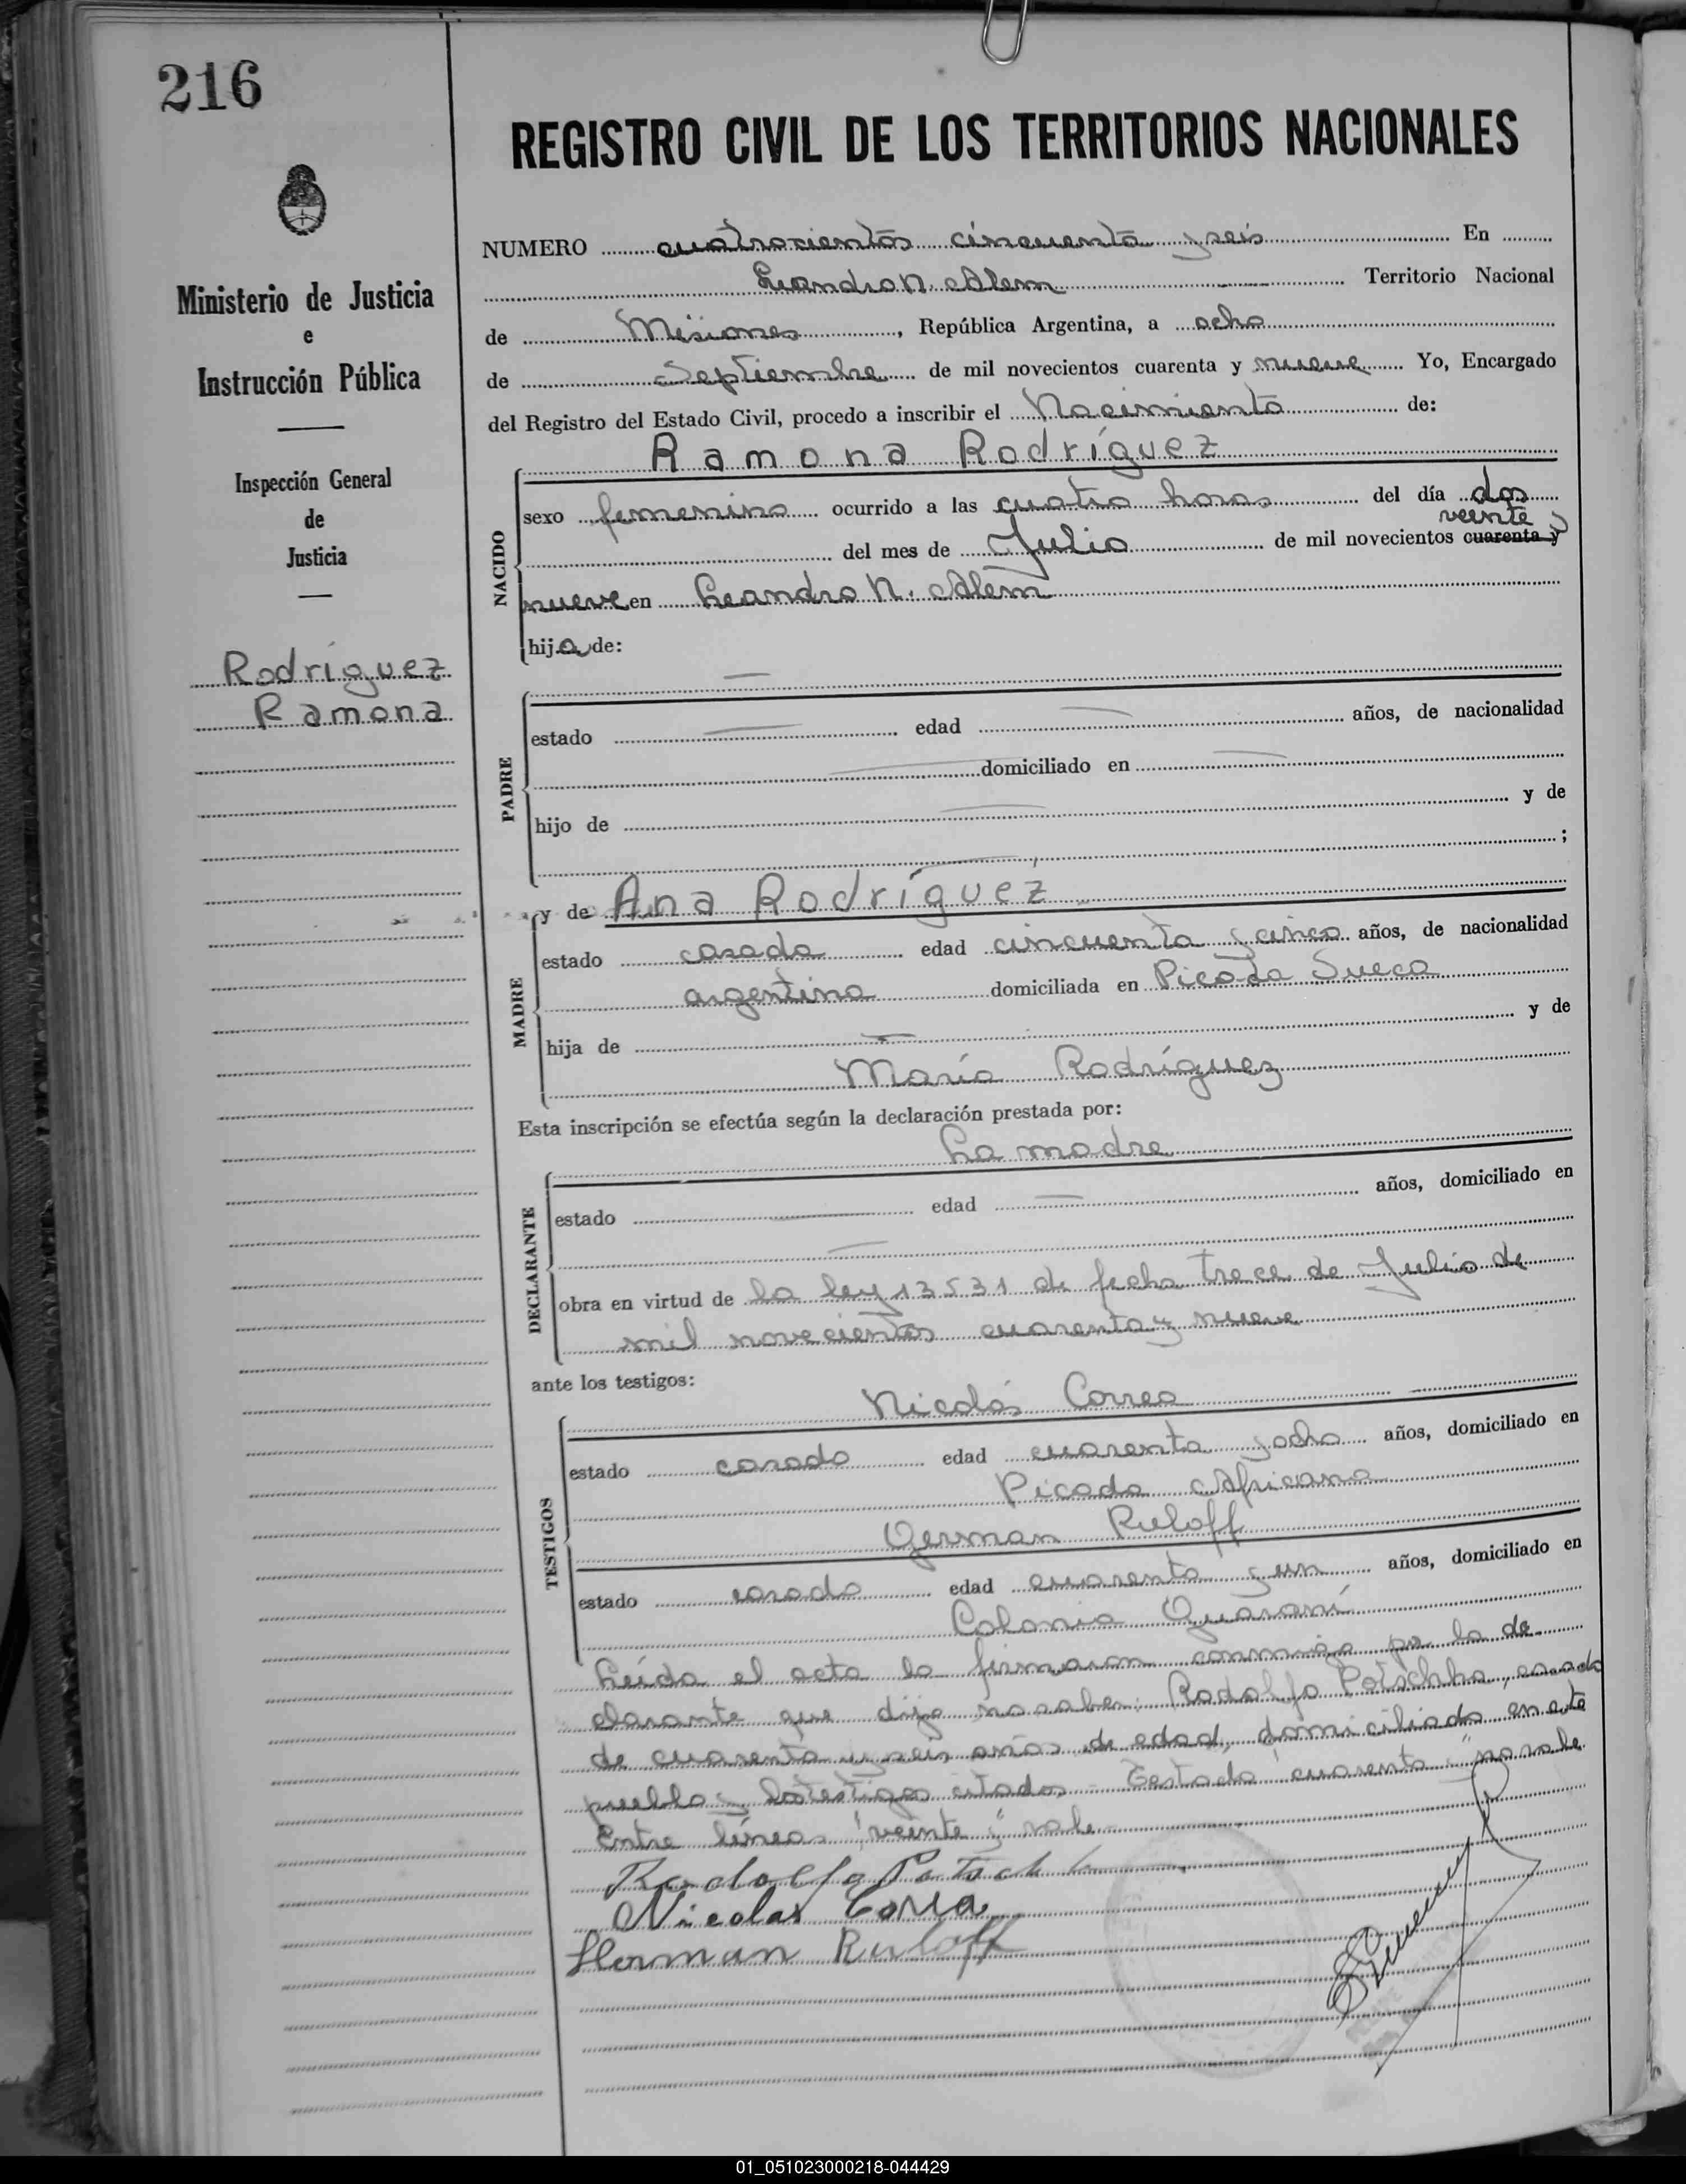 216
REGISTRO CIVIL DE LOS TERRITORIOS NACIONALES
Ministerio de Justicia
e
Instrucción Pública
Inspección General
de
Justicia
Rodríguez
Ramona
NUMERO cuatrocientos cincuenta y seis En
Leandro N. Alem Territorio Nacional
de Misiones, República Argentina, a ocho
de Septiembre de mil novecientos cuarenta y nueve Yo, Encargado
del Registro del Estado Civil, procedo a inscribir el Nacimiento de:
Ramona Rodríguez
NACIDO
sexo femenino ocurrido a las cuatro horas del día dos
veinte y
del mes de Julio de mil novecientos cuarenta y
nueve en Leandro N. Alem
hija de:
PADRE
estado edad años, de nacionalidad
domiciliado en
hijo de y de
;
y de Ana Rodríguez
MADRE
estado casada edad cincuenta y cinco años, de nacionalidad
argentina domiciliada en Picada Sueca
hija de y de
María Rodríguez
Esta inscripción se efectúa según la declaración prestada por:
La madre
DECLARANTE
estado edad años, domiciliado en
obra en virtud de la ley 13531 de fecha trece de Julio de
mil novecientos cuarenta y nueve
ante los testigos:
Nicolás Correa
TESTIGOS
estado casado edad cuarenta y ocho años, domiciliado en
Picada Africana
German Ruloff
estado casado edad cuarenta y un años, domiciliado en
Colonia Guaraní
Leída el acta la firmaron conmigo por la de
clarante que dijo no saber: Rodolfo Potschka, casado
de cuarenta y seis años de edad, domiciliado en este
pueblo y los testigos citados - Testado "cuarenta y" no vale
Entre líneas "veinte y" vale
Rodolfo
Nicolas Correa
Herman Ruloff
01_051023000218-044429